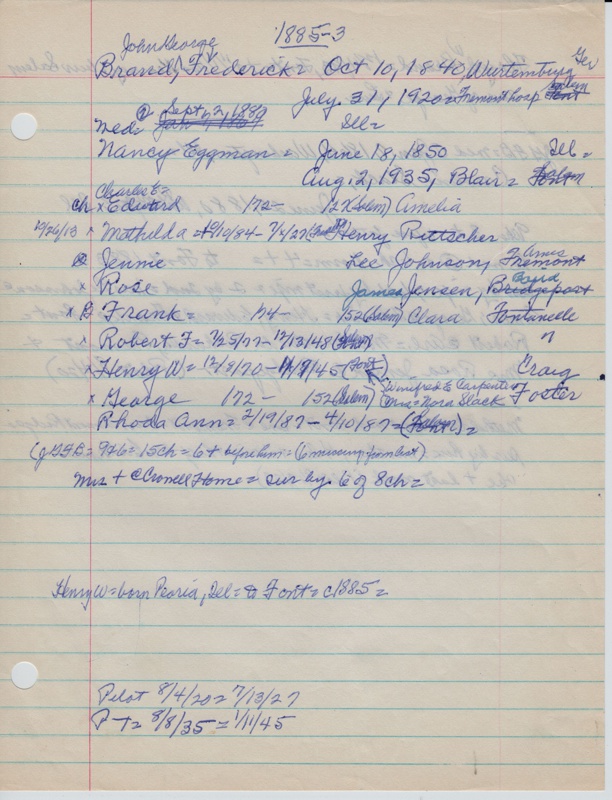 1885-3
John George
Brand, Frederick = Oct 10, 1840, Wurtemburg Ger
July 31, 1920 = Fremont hosp Salem Font
@ Sept 2, 1869 Ill =
Wed =
Nancy Eggman = June 18, 1850 Ill =
Aug 2, 1935, Blair = Salem Font
Charles E =
ch x Edward 172- (Salem) Amelia
x Mathilda = 10/84 - Henry Ruttscher
Jennie Lee Johnson, Ames Fremont
x Rose James Jensen, Bridgeport
x Frank = 174- 152 (Salem) Clara Fontanelle
x Robert F = 7/25/77 - 12/13/48 (Salem) "
x Henry W = 12/8/70 - 1/7/45 (Font) Craig
Winifred E Carpenter
x George 172 - 152 (Salem) Mrs = Nora Slack Foster
Rhoda Ann = 2/19/87 - 4/10/87 = (Salem Font) =
= 976 = 15 ch = 6 + by prelim = (6 missing from list)
Mrs + Home = sur by 6 of 8 ch =
Henry W = born Peoria, Ill = to Font = c1885 =
Pilot 8/4/20 = 7/13/27
P-T = 8/8/35 = 1/11/45